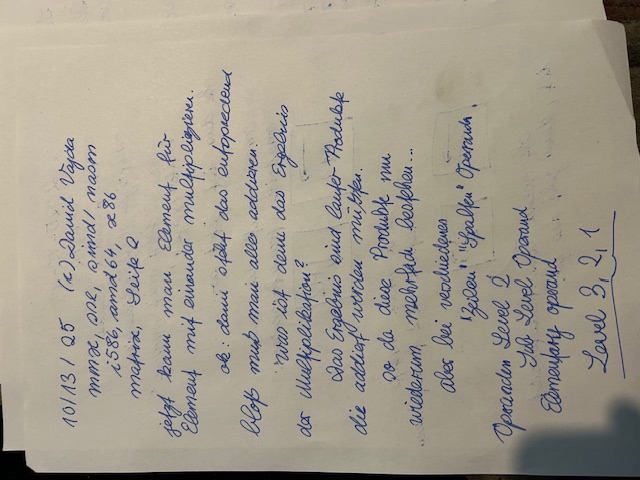 10/13/25 (c) David Vajda
mmx, sse, simd/ nasm
i586, amd64, x86
matrix, Seite 2
jetzt kann man Element für
Element mit einander multipliezieren.
ok: dann steht das entsprechend
bloß muß man alles addieren.
Was ist denn das Ergebnis
der Multiplikation?
Das Ergebnis sind lauter Produkte
die addiert werden müßten.
so da diese Produkte nun
wiederum mehrfach bestehen...
aber bei verschiedenen
"Zeilen" "Spalten" Operand.
Operanden Level 2
Sub Level Operand
Elementary operand
Level 3, 2, 1